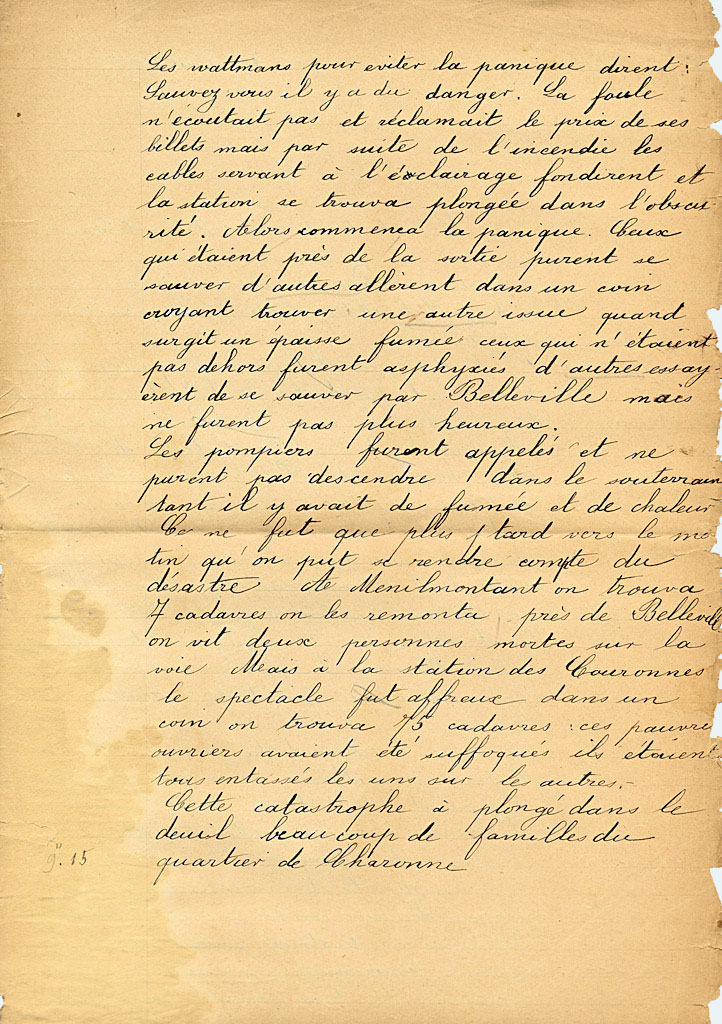 Les wattmans pour eviter la panique dirent :
Sauvez vous il y a du danger. La foule
n'écoutait pas et réclamait le prix de ses
billets mais par suite de l'incendie les
cables servant à l'éclairage fondirent et
la station se trouva plongée dans l'obscu
rité. Alors commenca la panique. Ceux
qui étaient près de la sortie purent se
sauver d'autres allèrent dans un coin
croyant trouver une autre issue quand
surgit un épaisse fumée ceux qui n'étaient
pas dehors furent asphyxiés d'autres essay-
èrent de se sauver par Belleville mais
ne furent pas plus heureux.
Les pompiers furent appelés et ne
purent pas descendre dans le souterrain
tant il y avait de fumée et de chaleur
Ce ne fut que plus tard vers le ma
tin qu'on put se rendre compte du
désastre A Menilmontant on trouva
7 cadavres on les remonta près de Belleville
on vit deux personnes mortes sur la
voie Mais à la station des Couronnes
le spectacle fut affreux dans un
coin on trouva 75 cadavres : ces pauvre
ouvriers avaient été suffoqués ils étaient
tous entassés les uns sur les autres.-
Cette catastrophe à plongé dans le
deuil beaucoup de familles du
quartier de Charonne
15